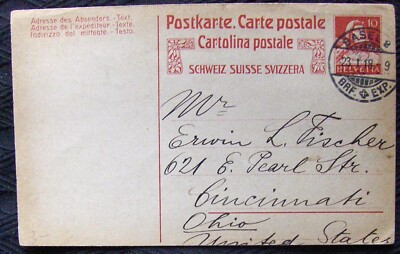 Adresse des Absenders.-Text.
Adresse de l'expéditeur.-Texte.
Indirizzo del mittente.-Testo.
Postkarte. Carte postale
Cartolina postale
SCHWEIZ SUISSE SVIZZERA
10
HELVETIA
BASEL 8
23.I.18. 9
BRF. EXP.
Mr
Erwin L. Fischer
621 E. Pearl Str.
Cincinnati
Ohio
United States